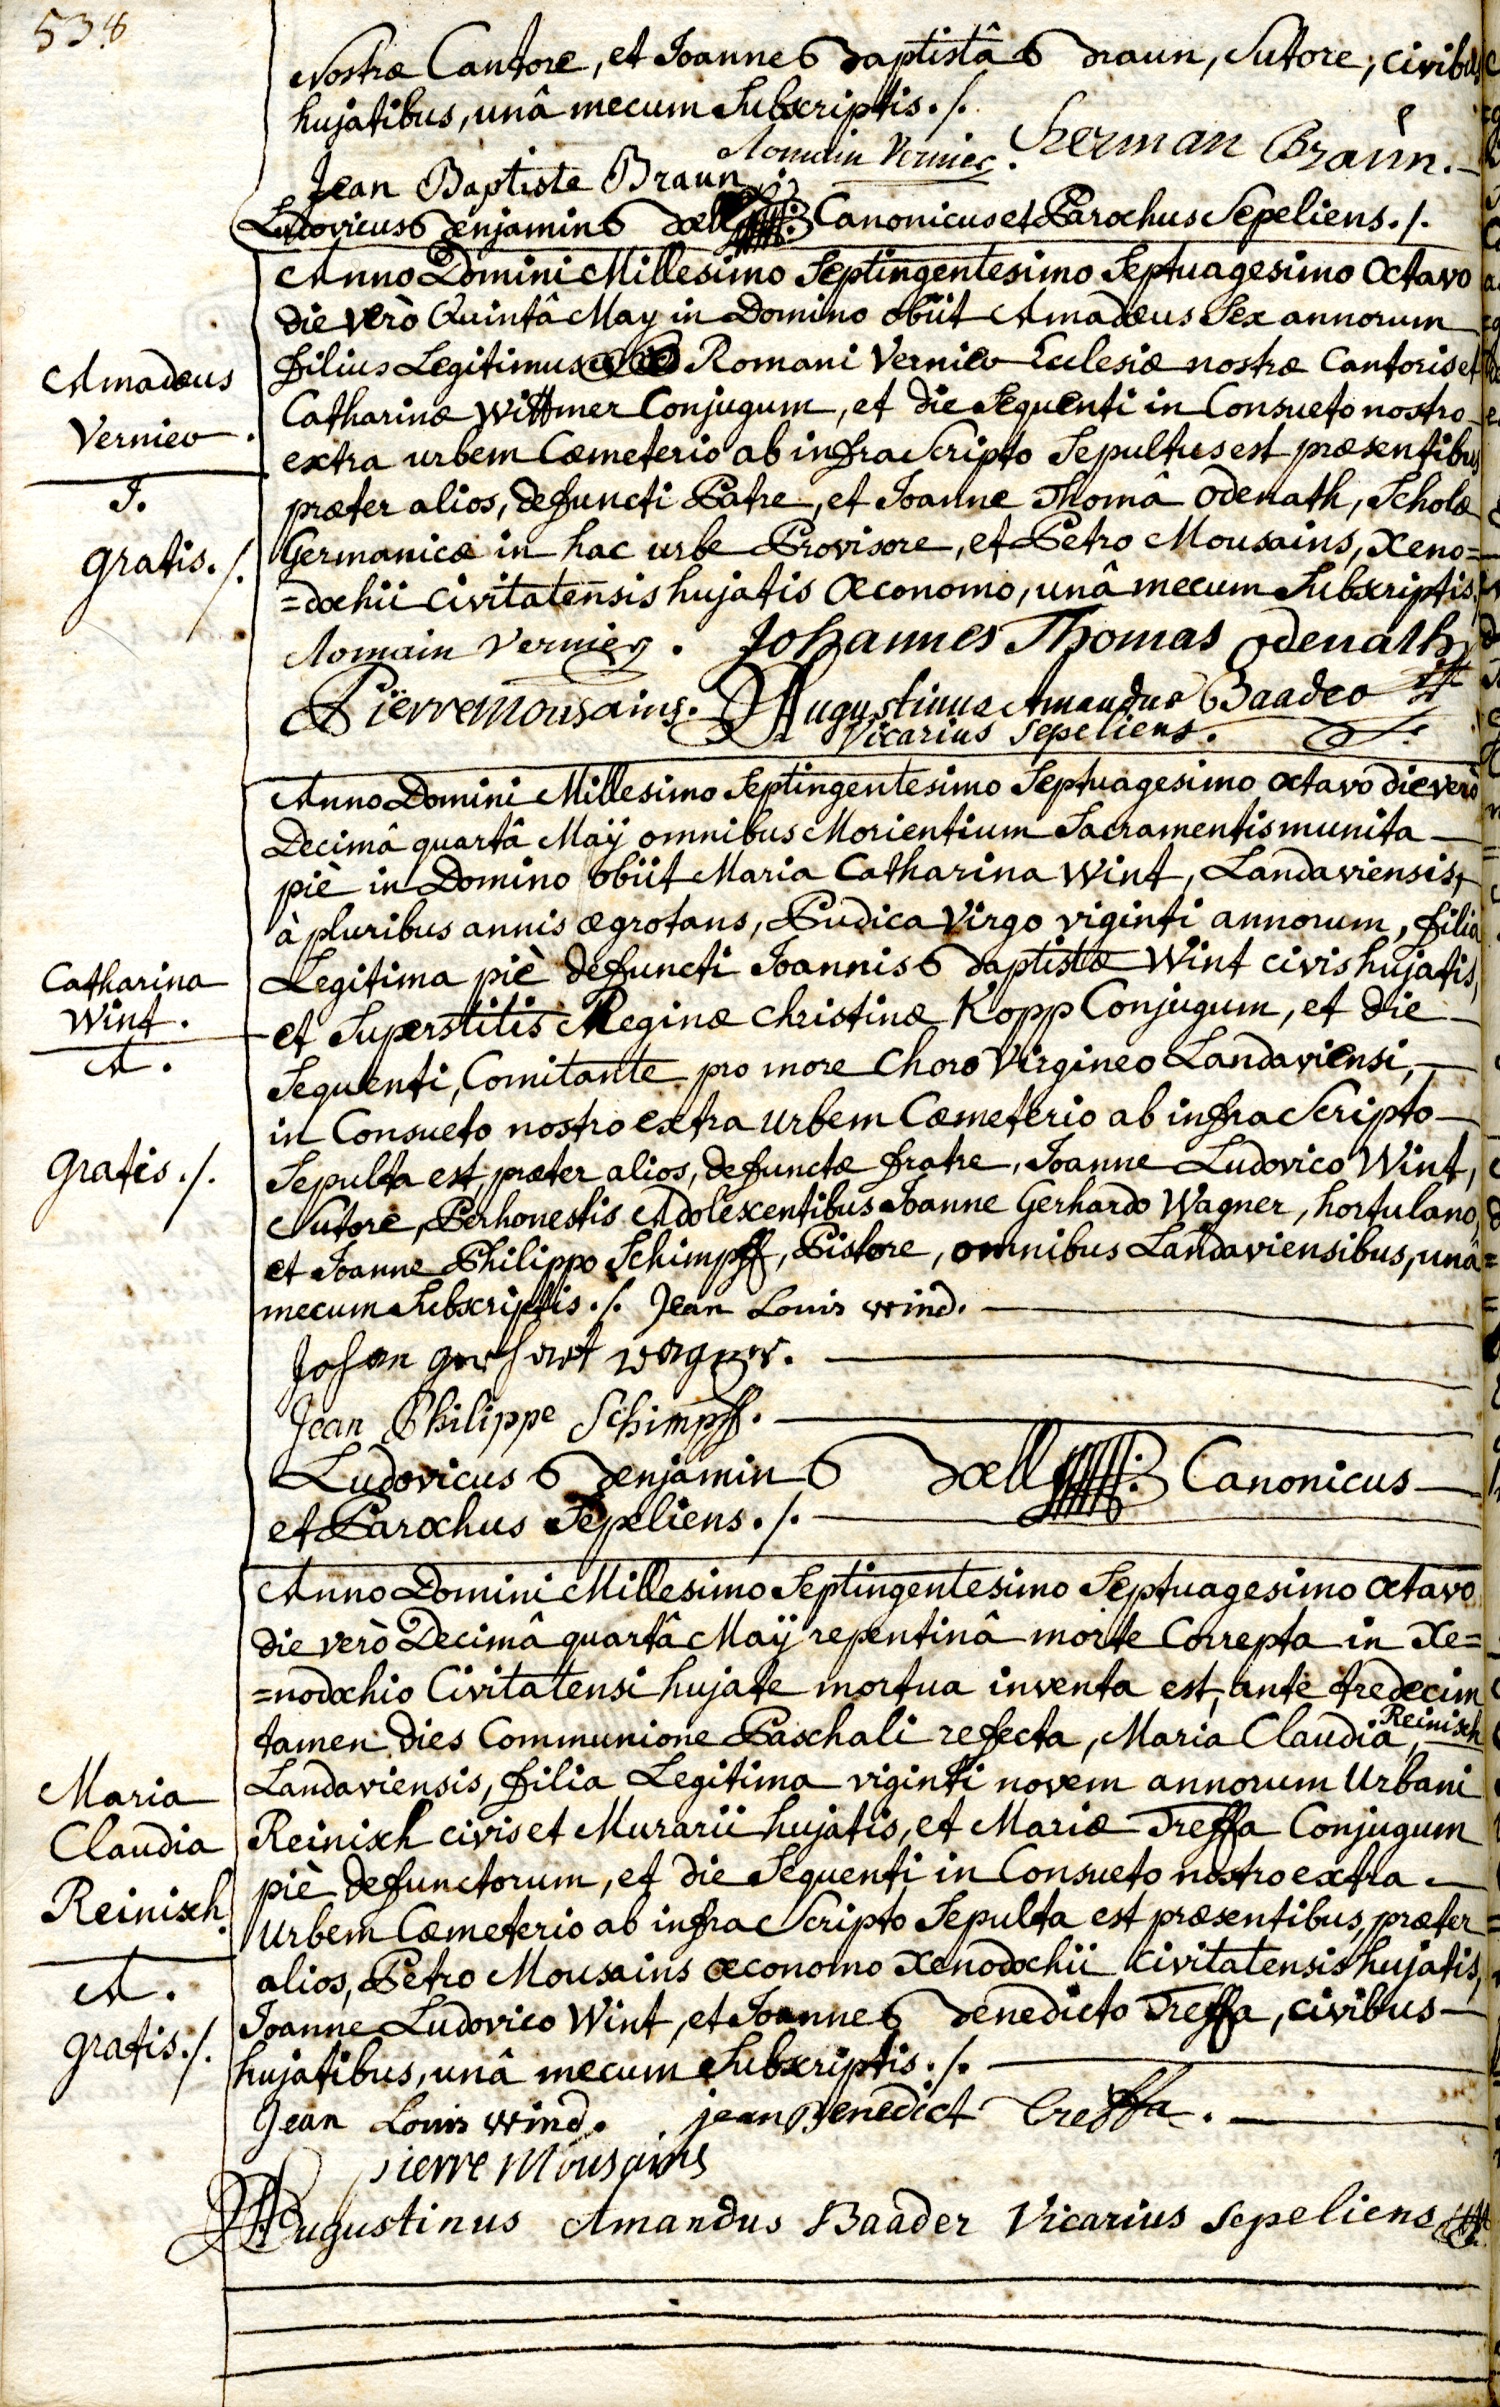 538
nostræ Cantore, et Joanne Baptistâ Braun, Sutore, civibus
hujatibus, unâ mecum Subscriptis ./.
Romain Vernier. Herman Braun.
Jean Baptiste Braun
Ludovicus Benjamin Boell Canonicus et Parochus Sepeliens ./.
Anno Domini Millesimo Septingentesimo Septuagesimo Octavo
die verò Quintâ May in Domino obiit Amadæus Sex annorum
filius Legitimus Romani Vernier Ecclesiæ nostræ Cantoris et
Catharinæ Wittmer Conjugum, et die Sequenti in Consueto nostro
extra urbem Cœmeterio ab infra Scripto Sepultus est præsentibus
præter alios, defuncti Patre, et Joanne Thomâ Odenath, Scholæ
Germanicæ in hac urbe Provisore, et Petro Mousains, Xeno=
=dochii Civitatensis hujatis Œconomo, unâ mecum Subscriptis.
Romain Vernier. Johannes Thomas Odenath
Pierre Mousains. Augustinus Amandus Baader
Vicarius Sepeliens.
Amadæus
Vernier.
I.
gratis ./.
Anno Domini Millesimo Septingentesimo Septuagesimo octavo die verò
Decimâ quartâ Maÿ omnibus Morientium Sacramentis munita
piè in Domino obiit Maria Catharina Wint, Landaviensis,
à pluribus annis ægrotans, Pudica Virgo viginti annorum, filia
Legitima piè defuncti Joannis Baptistæ Wint civis hujatis,
et Superstitis Reginæ Christinæ Kopp Conjugum, et die
Sequenti, Comitante pro more Choro Virgineo Landaviensi,
in Consueto nostro extra Urbem Cœmeterio ab infra Scripto
Sepulta est, præter alios, defunctæ fratre, Joanne Ludovico Wint,
Sutore, Perhonestis Adolescentibus Joanne Gerhardo Wagner, hortulano,
et Joanne Philippo Schimpff, Pistore, omnibus Landaviensibus, unâ=
mecum Subscriptis ./. Jean Louis wind.
Johan gerhart wagner.
Jean Philippe Schimpff.
Ludovicus Benjamin Boell Canonicus
et Parochus Sepeliens ./.
Catharina
Wint.
A.
Gratis ./.
Anno Domini Millesimo Septingentesimo Septuagesimo octavo
die verò Decimâ quartâ Maÿ repentinâ morte Correpta in Xe=
=nodochio Civitatensi hujate mortua inventa est, ante tredecim
tamen dies Communione Paschali refecta, Maria Claudia, Reinisch
Landaviensis, filia Legitima viginti novem annorum Urbani
Reinisch civis et Murarii hujatis, et Mariæ Treffa Conjugum
piè defunctorum, et die Sequenti in Consueto nostro extra
Urbem Cœmeterio ab infra Scripto Sepulta est præsentibus, præter
alios, Petro Mousains œconomo Xenodochii Civitatensis hujatis,
Joanne Ludovico Wint, et Joanne Benedicto Treffa, civibus
hujatibus, unâ mecum Subscriptis ./.
Jean Louis wind. jean Benedict Treffa.
Pierre Mousains
Augustinus Amandus Baader Vicarius Sepeliens
Maria
Claudia
Reinisch.
A.
gratis ./.